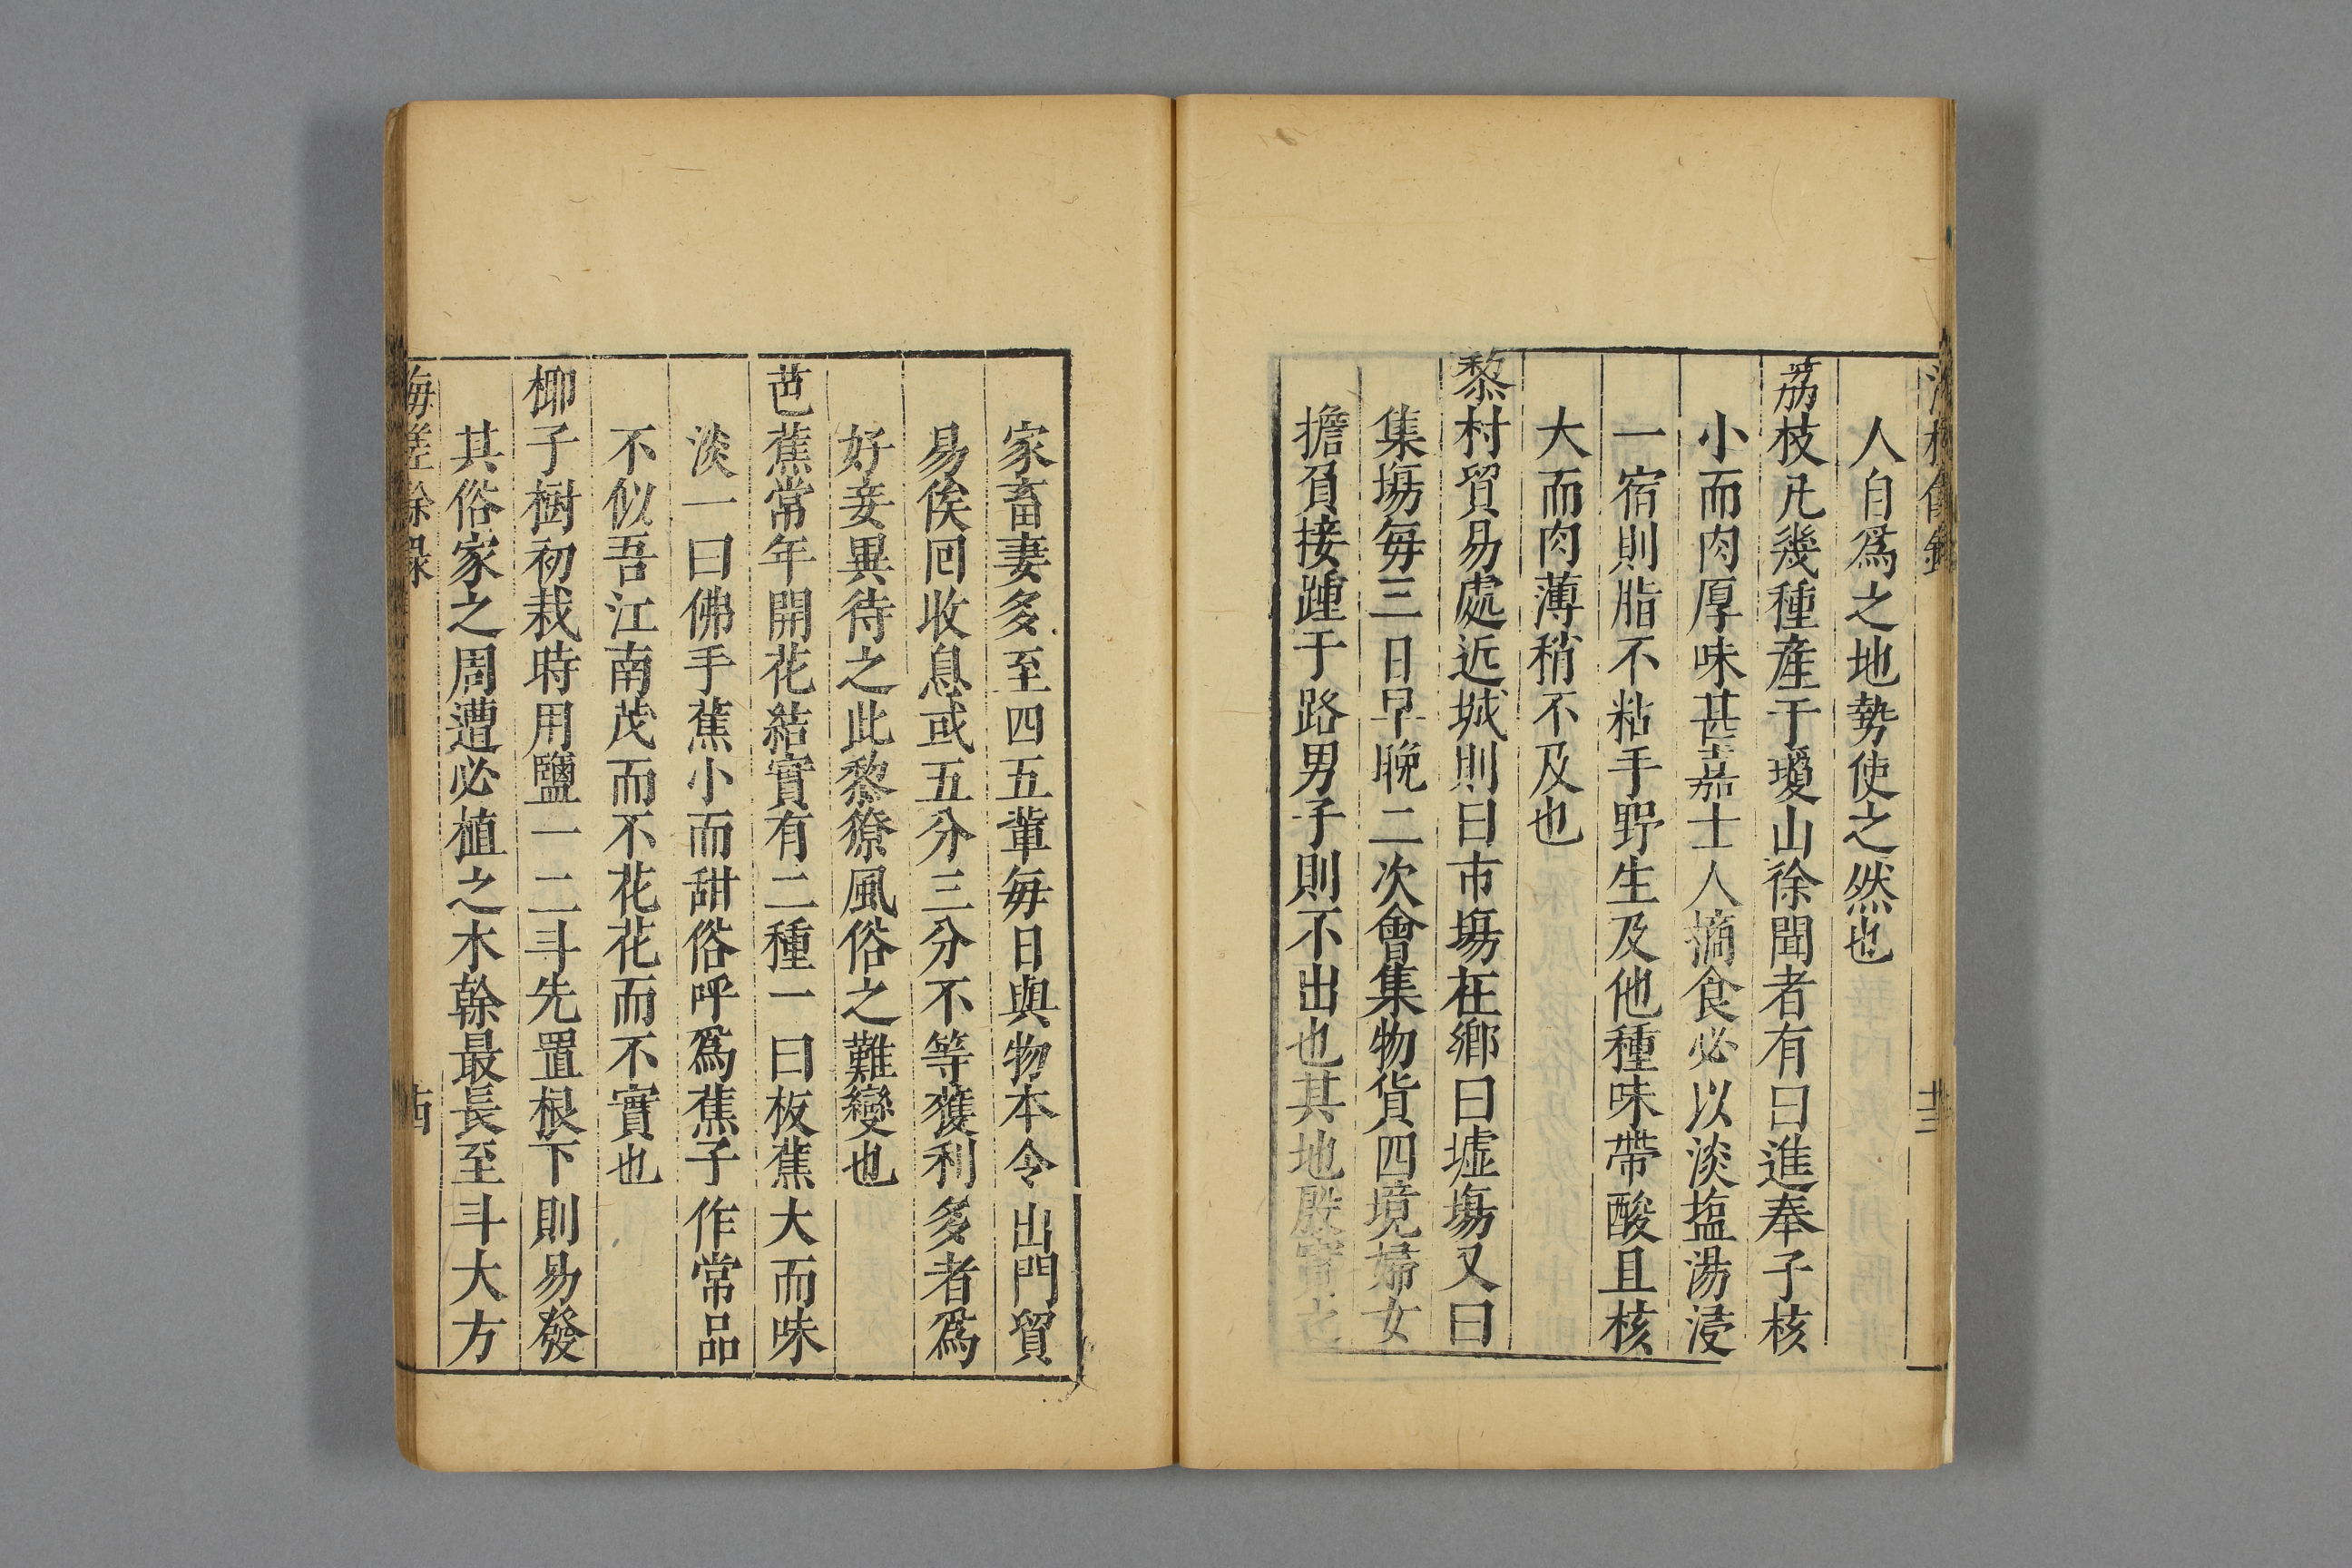 人自爲之地勢使之然也
荔枝凡幾種産于瓊山徐聞者有曰進奉子核
小而肉厚味甚嘉士人摘食必以淡塩湯浸
一宿則脂不粘手野生及他種味帶酸且核
大而肉薄稍不及也
黎村貿易處近城則曰市塲在鄉曰墟塲又曰
集塲每三日早晚二次會集物貨四境婦女
擔負接踵于路男子則不出也其地殷實之
家畜妻多至四五輩每日與物本令出門貿
易俟囘收息或五分三分不等獲利多者爲
好妾異待之此黎獠風俗之難變也
芭蕉常年開花結實有二種一曰板蕉大而味
淡一曰佛手蕉小而甜俗呼爲蕉子作常品
不似吾江南茂而不花花而不實也
椰子樹初栽時用鹽一二斗先置根下則易發
其俗家之周遭必植之木幹最長至斗大方
海槎餘錄